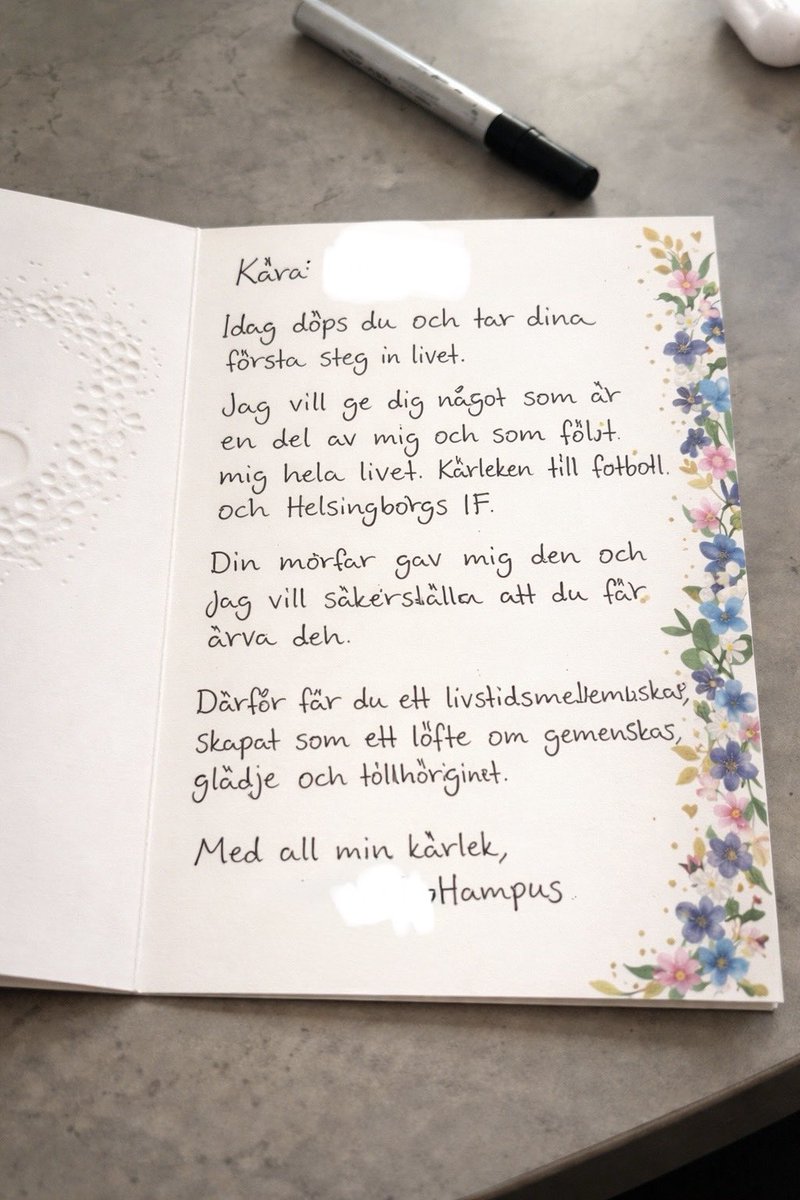 Kära:
Idag döps du och tar dina
första steg in livet.
Jag vill ge dig något som är
en del av mig och som
mig hela livet. Kärleken till fotboll.
och Helsingborgs IF.
Din morfar gav mig den och
Jag vill säkerställa att du får
ärva
Därför får du ett
skapat som ett löfte om gemenskap,
glädje och
Med all min kärlek,
Hampus